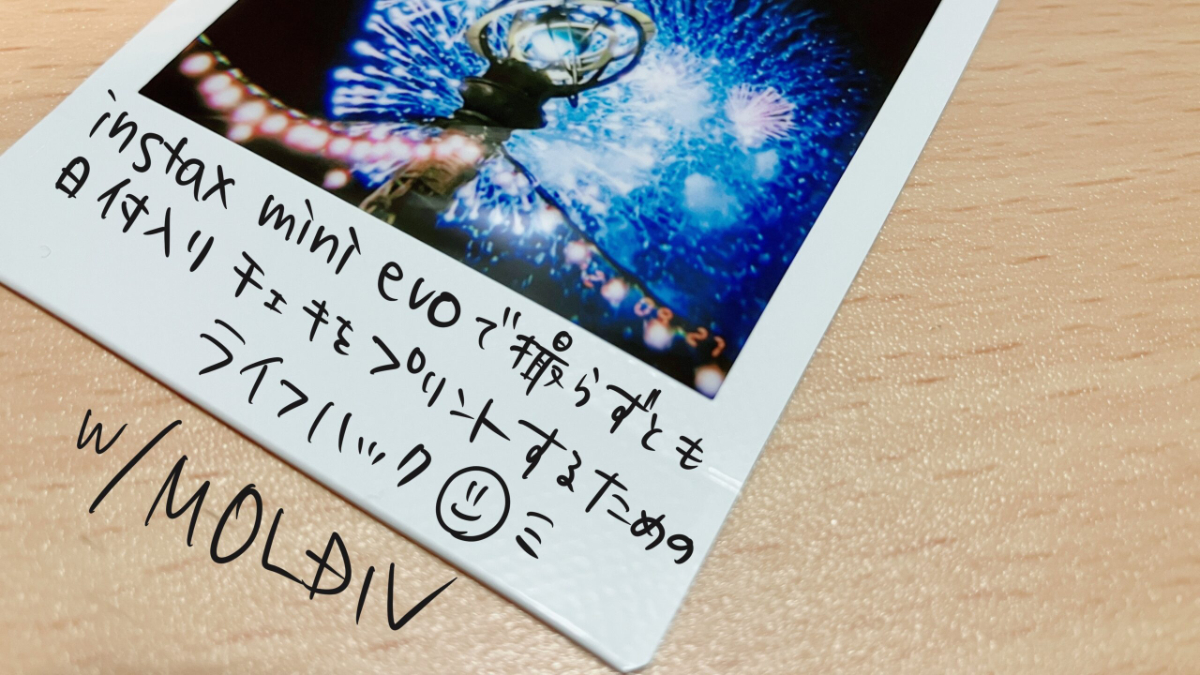 instax mini evoで撮らずとも
日付入りチェキをプリントするための
ライフハック
w/MOLDIV
09 27